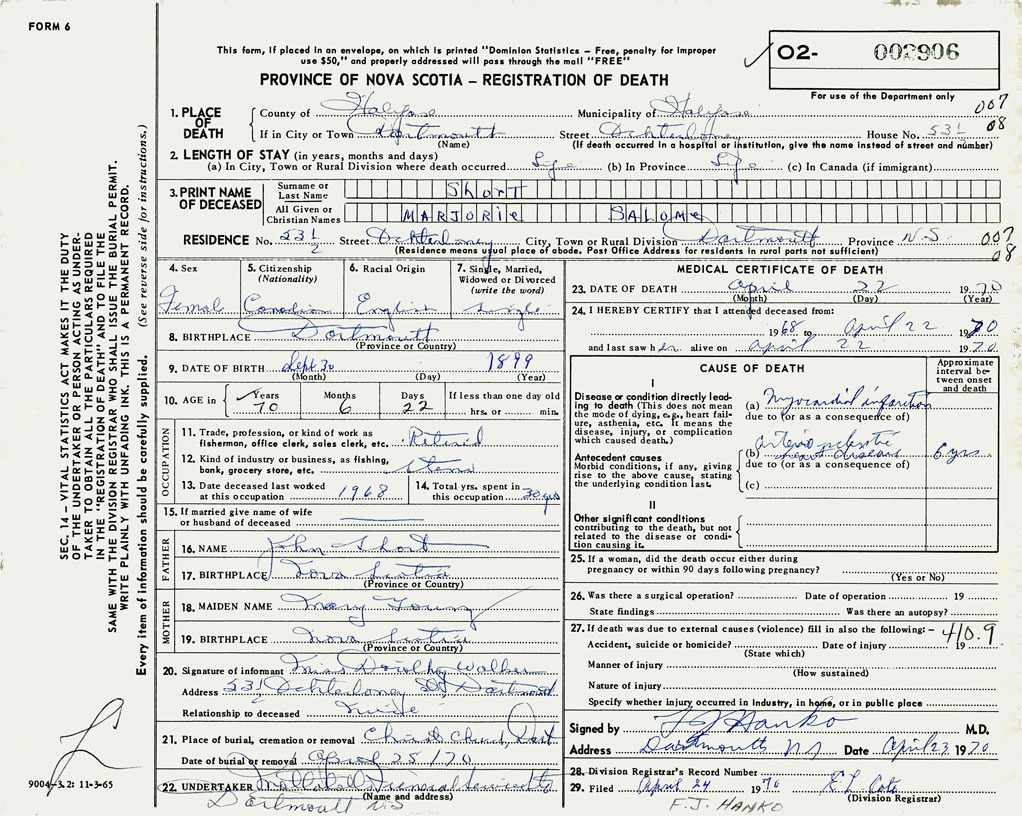 FORM 6
This form, if placed in an envelope, on which is printed "Dominion Statistics – Free, penalty for improper
use $50," and properly addressed will pass through the mail "FREE"
PROVINCE OF NOVA SCOTIA – REGISTRATION OF DEATH
O2- 002906
For use of the Department only
007
08
1. PLACE OF DEATH
County of Halifax Municipality of Halifax
If in City or Town Dartmouth Street Ochterloney House No. 53½
(Name) (If death occurred in a hospital or institution, give the name instead of street and number)
2. LENGTH OF STAY (in years, months and days)
(a) In City, Town or Rural Division where death occurred Life (b) In Province Life (c) In Canada (if immigrant)
3. PRINT NAME OF DECEASED
Surname or Last Name SHORT
All Given or Christian Names MARJORIE SALOME
RESIDENCE No. 53½ Street Ochterloney City, Town or Rural Division Dartmouth Province N.S. 007
08
(Residence means usual place of abode. Post Office Address for residents in rural parts not sufficient)
4. Sex Female
5. Citizenship (Nationality) Canadian
6. Racial Origin English
7. Single, Married, Widowed or Divorced (write the word) Single
8. BIRTHPLACE Dartmouth
(Province or Country)
9. DATE OF BIRTH Sept 30 1899
(Month) (Day) (Year)
10. AGE in Years 70 Months 6 Days 22 If less than one day old hrs. or min.
OCCUPATION
11. Trade, profession, or kind of work as fisherman, office clerk, sales clerk, etc. Retired
12. Kind of industry or business, as fishing, bank, grocery store, etc.
13. Date deceased last worked at this occupation 1968
14. Total yrs. spent in this occupation 30 yrs
15. If married give name of wife or husband of deceased
FATHER
16. NAME John Short
17. BIRTHPLACE Nova Scotia
(Province or Country)
MOTHER
18. MAIDEN NAME Mary Young
19. BIRTHPLACE Nova Scotia
(Province or Country)
20. Signature of informant Miss Dorothy Walker
Address 53½ Ochterloney St, Dartmouth
Relationship to deceased
21. Place of burial, cremation or removal Christ Church, Dart
Date of burial or removal April 25/70
22. UNDERTAKER Funeral Service
(Name and address)
Dartmouth N.S.
MEDICAL CERTIFICATE OF DEATH
23. DATE OF DEATH April 22 1970
(Month) (Day) (Year)
24. I HEREBY CERTIFY that I attended deceased from:
1968 to April 22 1970
and last saw her alive on April 22 1970
CAUSE OF DEATH
Approximate interval between onset and death
I
Disease or condition directly leading to death (This does not mean the mode of dying, e.g., heart failure, asthenia, etc. It means the disease, injury, or complication which caused death.)
(a) Myocardial infarction
due to (or as a consequence of)
Antecedent causes
Morbid conditions, if any, giving rise to the above cause, stating the underlying condition last.
(b) arteriosclerotic heart disease 6 yrs.
due to (or as a consequence of)
(c)
II
Other significant conditions
contributing to the death, but not related to the disease or condition causing it.
25. If a woman, did the death occur either during pregnancy or within 90 days following pregnancy?
(Yes or No)
26. Was there a surgical operation? Date of operation 19
State findings Was there an autopsy?
27. If death was due to external causes (violence) fill in also the following:– 410.9
Accident, suicide or homicide? Date of injury 19
(State which)
Manner of injury
(How sustained)
Nature of injury
Specify whether injury occurred in Industry, in home, or in public place
Signed by F J Hanko M.D.
Address Dartmouth NS Date April 23 1970
28. Division Registrar's Record Number
29. Filed April 24 1970
(Division Registrar)
F.J. HANKO
SEC. 14 – VITAL STATISTICS ACT MAKES IT THE DUTY
OF THE UNDERTAKER OR PERSON ACTING AS UNDER-
TAKER TO OBTAIN ALL THE PARTICULARS REQUIRED
IN THE "REGISTRATION OF DEATH" AND TO FILE THE
SAME WITH THE DIVISION REGISTRAR WHO SHALL ISSUE THE BURIAL PERMIT.
WRITE PLAINLY WITH UNFADING INK. THIS IS A PERMANENT RECORD.
Every item of information should be carefully supplied. (See reverse side for instructions.)
9004-3.2: 11-3-65